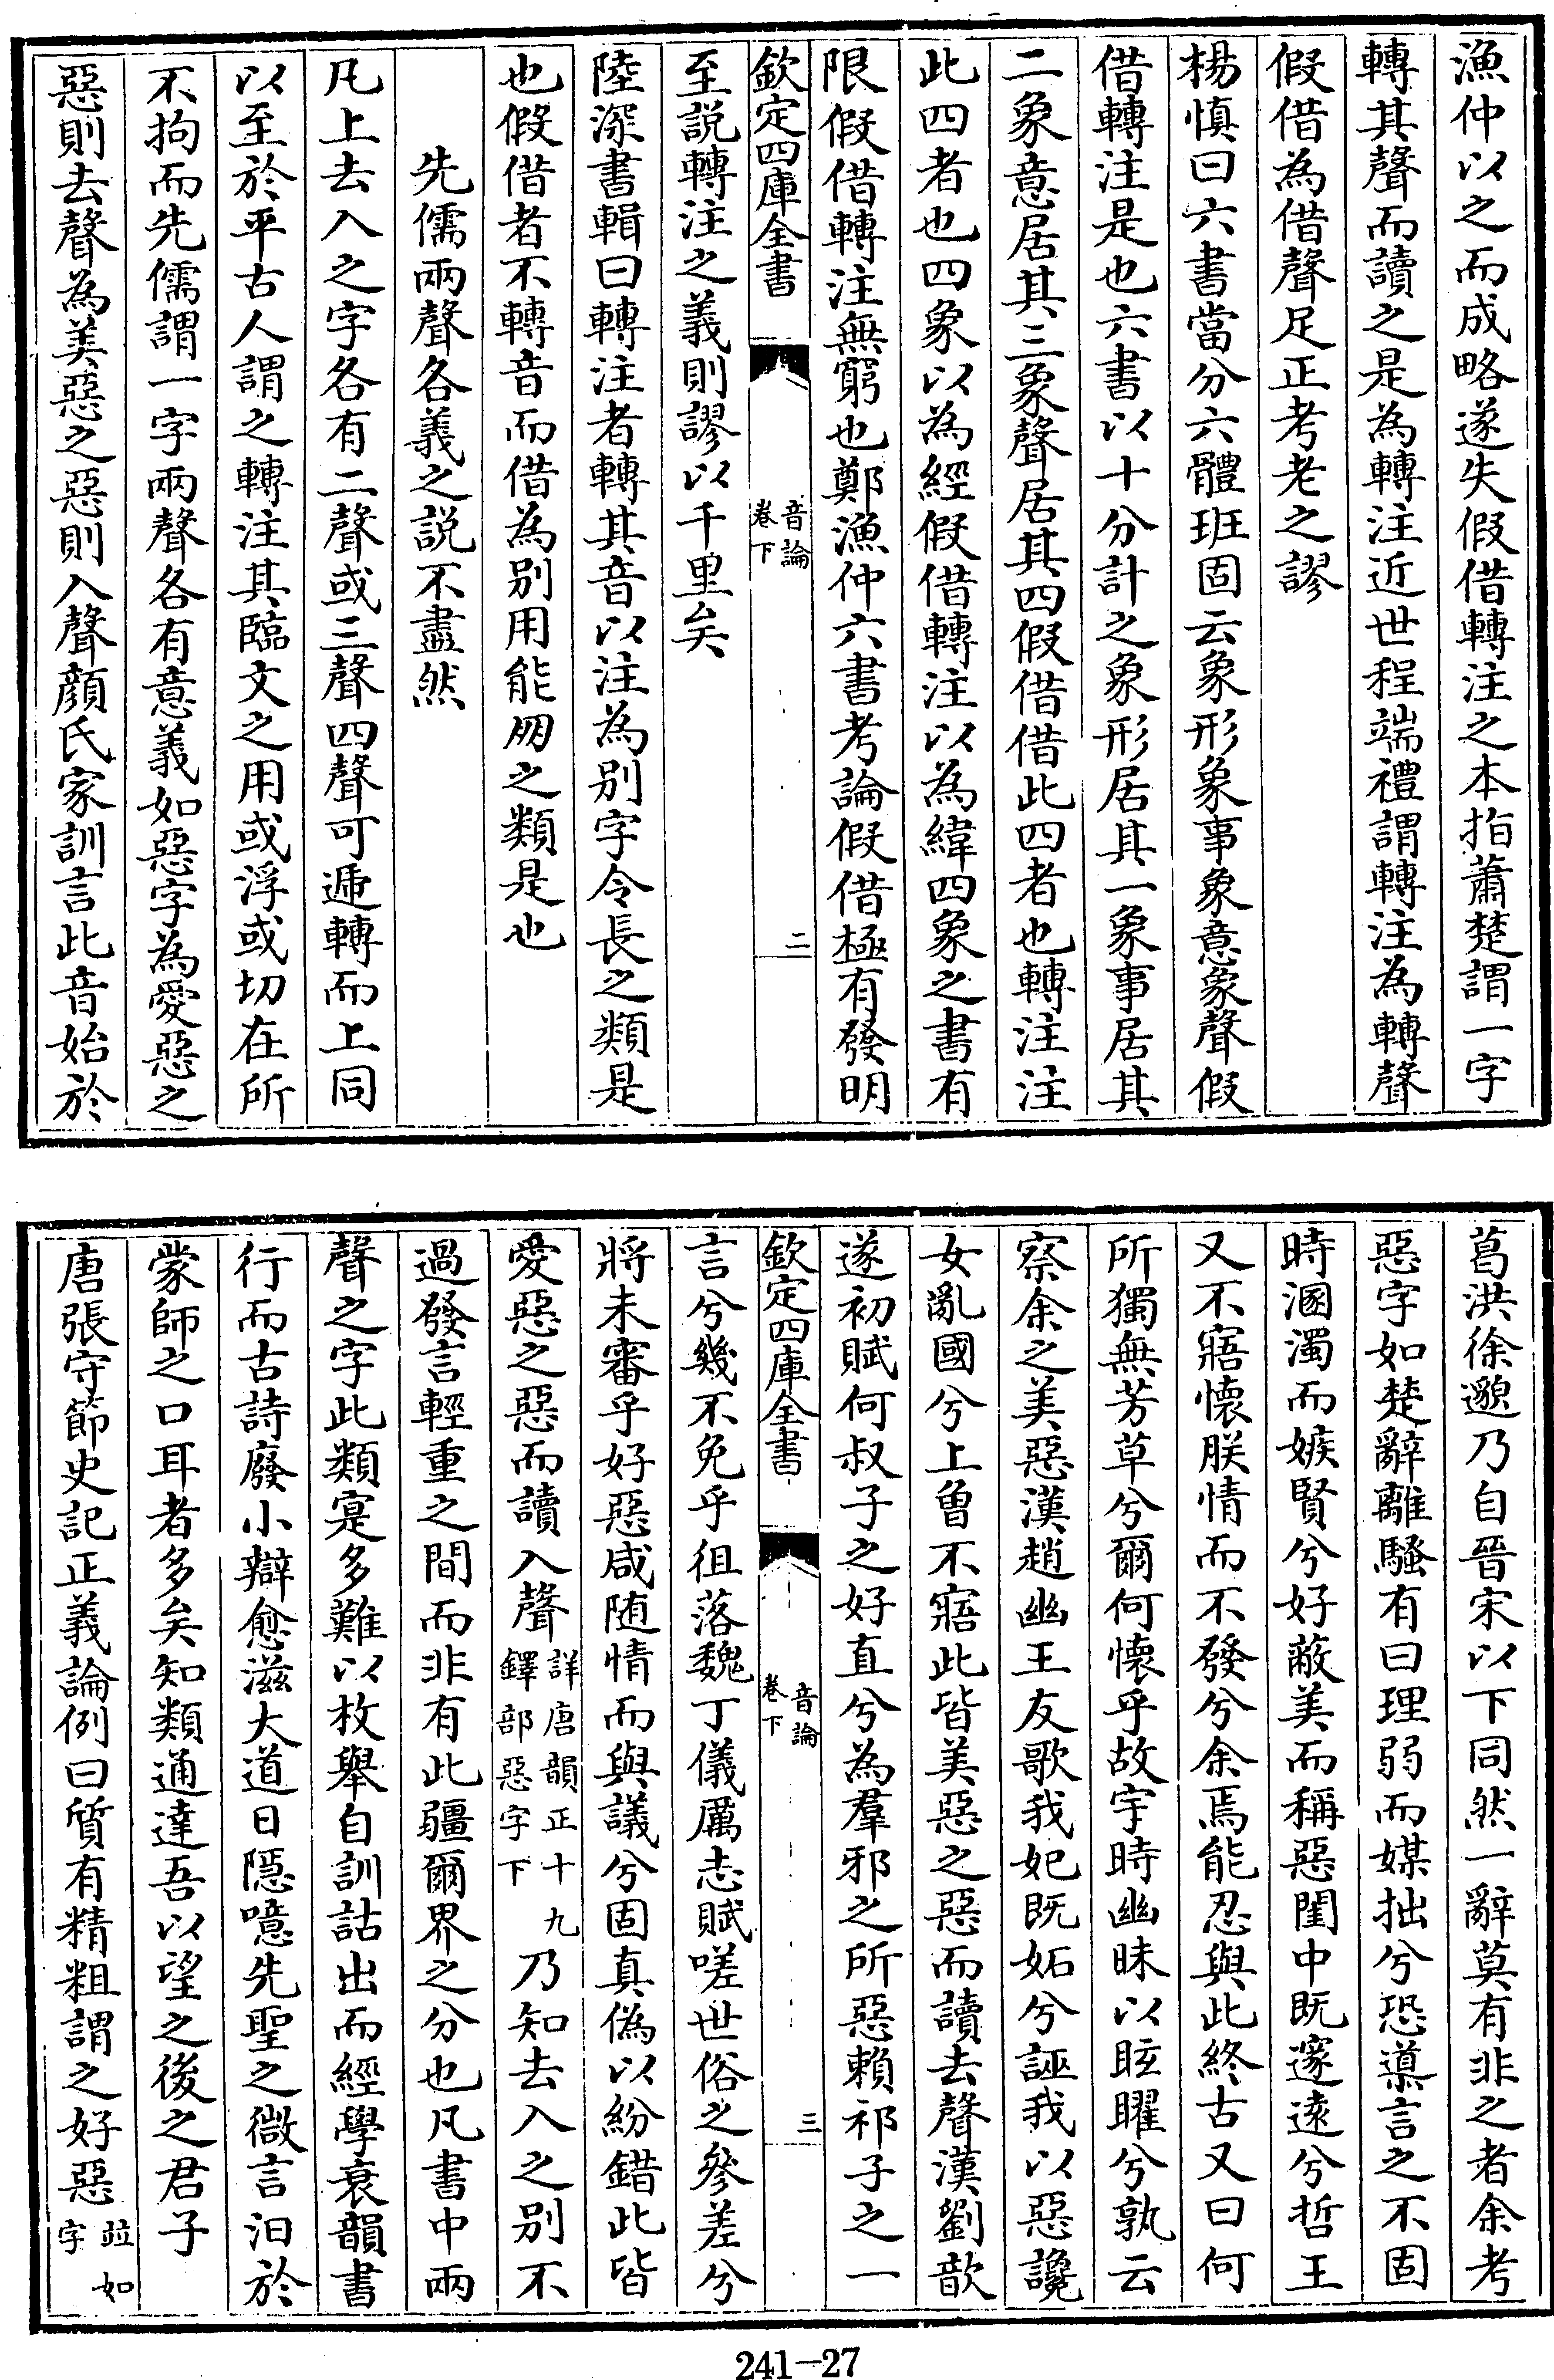 漁仲以之而成略遂失假借轉注之本指蕭楚謂一字
轉其聲而讀之是為轉注近世程端禮謂轉注為轉聲
假借為借聲足正考老之謬
楊慎曰六書當分六體班固云象形象事象意象聲假
借轉注是也六書以十分計之象形居其一象事居其
二象意居其三象聲居其四假借借此四者也轉注注
此四者也四象以為經假借轉注以為緯四象之書有
限假借轉注無窮也鄭漁仲六書考論假借極有發明
欽定四庫全書
音論
卷下
二
至説轉注之義則謬以千里矣
陸深書輯曰轉注者轉其音以注為別字令長之類是
也假借者不轉音而借為別用能朋之類是也
先儒兩聲各義之説不盡然
凡上去入之字各有二聲或三聲四聲可遞轉而上同
以至於平古人謂之轉注其臨文之用或浮或切在所
不拘而先儒謂一字兩聲各有意義如惡字為愛惡之
惡則去聲為美惡之惡則入聲顔氏家訓言此音始於
葛洪徐邈乃自晉宋以下同然一辭莫有非之者余考
惡字如楚辭離騷有曰理弱而媒拙兮恐導言之不固
時溷濁而嫉賢兮好蔽美而稱惡閨中既邃遠兮哲王
又不寤懷朕情而不發兮余焉能忍與此終古又曰何
所獨無芳草兮爾何懷乎故宇時幽昧以眩曜兮孰云
察余之美惡漢趙幽王友歌我妃既妬兮誣我以惡讒
女亂國兮上曾不寤此皆美惡之惡而讀去聲漢劉歆
遂初賦何叔子之好直兮為羣邪之所惡賴祁子之一
欽定四庫全書
音論
卷下
三
言兮幾不免乎徂落魏丁儀厲志賦嗟世俗之參差兮
將未審乎好惡咸随情而與議兮固真偽以紛錯此皆
愛惡之惡而讀入聲詳唐韻正十九鐸部惡字下乃知去入之別不
過發言輕重之間而非有此疆爾界之分也凡書中兩
聲之字此類寔多難以枚舉自訓詁出而經學衰韻書
行而古詩廢小辯愈滋大道日隱噫先聖之微言汩於
蒙師之口耳者多矣知類通達吾以望之後之君子
唐張守節史記正義論例曰質有精粗謂之好惡竝如字
241-27